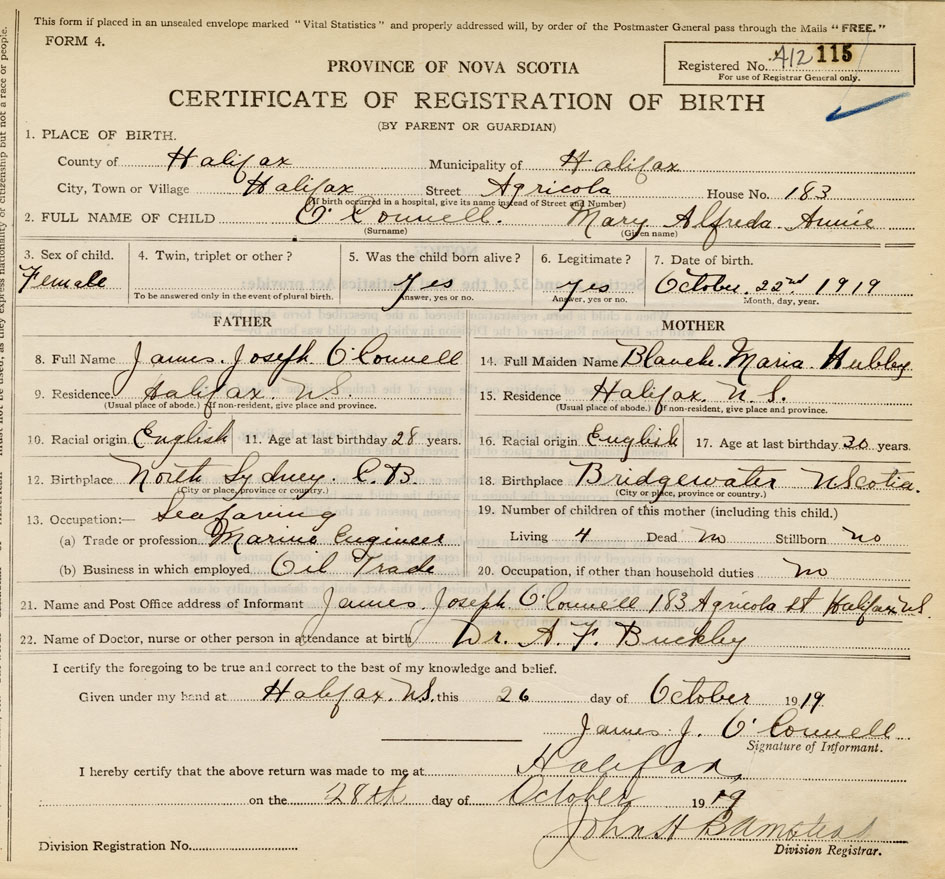 This form if placed in an unsealed envelope marked "Vital Statistics" and properly addressed will, by order of the Postmaster General pass through the Mails "FREE."
FORM 4.
Registered No. 412 115
For use of Registrar General only.
PROVINCE OF NOVA SCOTIA
CERTIFICATE OF REGISTRATION OF BIRTH
(BY PARENT OR GUARDIAN)
1. PLACE OF BIRTH.
County of Halifax Municipality of Halifax
City, Town or Village Halifax Street Agricola House No. 183
(If birth occurred in a hospital, give its name instead of Street and Number)
2. FULL NAME OF CHILD O'Connell. Mary Alfreda Annie
(Surname) (Given name)
3. Sex of child. 4. Twin, triplet or other? 5. Was the child born alive? 6. Legitimate? 7. Date of birth.
Female Yes Yes October 22nd 1919
To be answered only in the event of plural birth. Answer, yes or no. Answer, yes or no. Month, day, year.
FATHER MOTHER
8. Full Name James Joseph O'Connell 14. Full Maiden Name Blanche Maria
9. Residence Halifax N.S. 15. Residence Halifax N.S.
(Usual place of abode.) (If non-resident, give place and province. (Usual place of abode.) (If non-resident, give place and province.
10. Racial origin English 11. Age at last birthday 28 years. 16. Racial origin English 17. Age at last birthday 30 years.
12. Birthplace North Sydney. C.B. 18. Birthplace Bridgewater N Scotia.
(City or place, province or country.) (City or place, province or country.)
13. Occupation:— Seafaring 19. Number of children of this mother (including this child.)
(a) Trade or profession Marine Engineer Living 4 Dead no Stillborn no
(b) Business in which employed Oil Trade 20. Occupation, if other than household duties no
21. Name and Post Office address of Informant James Joseph O'Connell 183 Agricola St Halifax N.S.
22. Name of Doctor, nurse or other person in attendance at birth Dr. A. F. Buckley
I certify the foregoing to be true and correct to the best of my knowledge and belief.
Given under my hand at Halifax N.S. this 26 day of October 1919
James J. O'Connell
Signature of Informant.
I hereby certify that the above return was made to me at Halifax
on the 28th day of October 1919
John H
Division Registration No. Division Registrar.